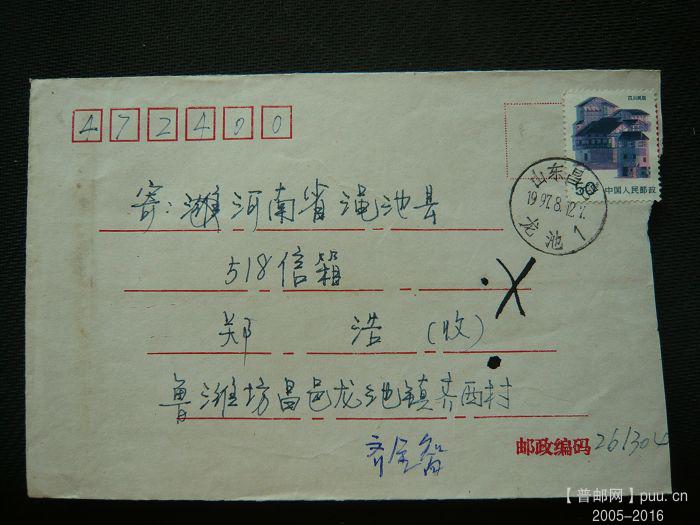 472400
四川民居
50
中国人民邮政
山东昌邑
1997.8.12
龙池 1
寄:河南省渑池县
518信箱
郑 浩 (收)
鲁潍坊昌邑龙池镇齐西村
邮政编码261304
【普邮网】puu.cn
2005-2016